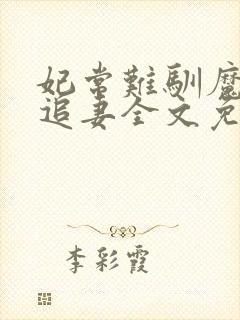 妃常難馴魔
追妻全文免
李彩霞